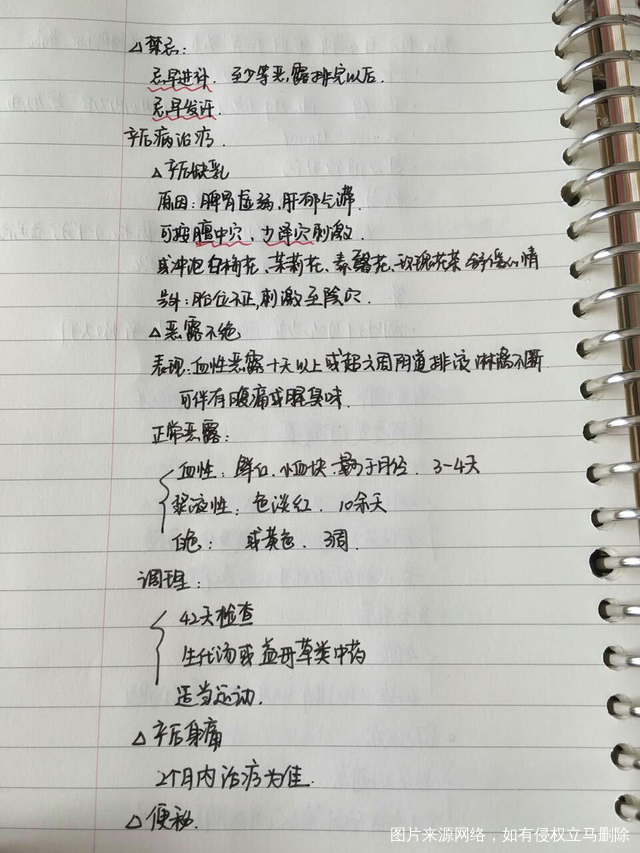 △禁忌：
忌早进补，至少等恶露排完以后．
忌早发汗．
产后病治疗．
△产后缺乳
原因：脾胃虚弱，肝郁气滞．
可按膻中穴，少泽穴刺激．
或冲泡白梅花、茉莉花、素馨花、玫瑰花茶舒缓心情
另外：胎位不正，刺激至阴穴．
△恶露不绝
表现：血性恶露十天以上或超六周阴道排液淋漓不断
可伴有腹痛或腥臭味．
正常恶露：
血性：鲜红、小血块．量多于月经．3-4天
浆液性：色淡红．10余天
白色：或黄色．3周．
调理：
42天检查
生化汤或益母草类中药
适当运动．
△产后身痛
2个月内治疗为佳．
△便秘．
图片来源网络，如有侵权立马删除